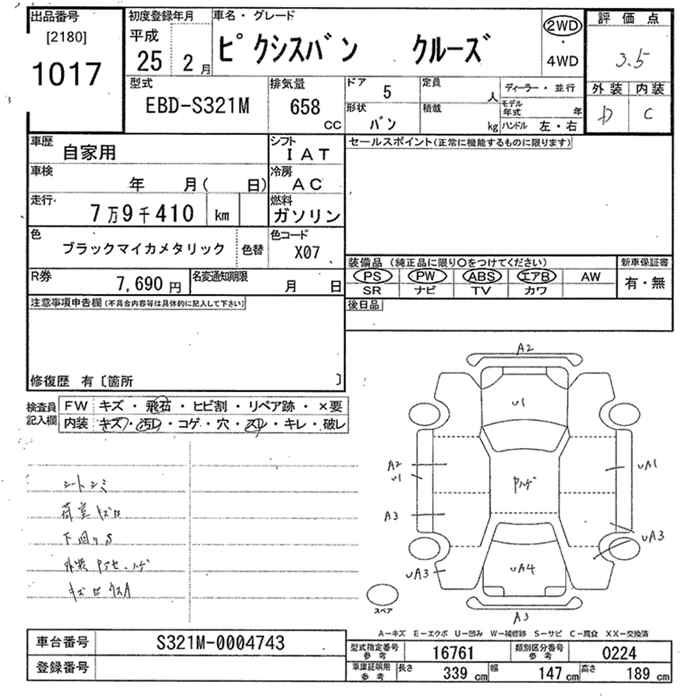 出品番号
[2180]
1017
初度登録年月
平成
25 2月
車名・グレード
ピクシスバン クルーズ
2WD
・
4WD
評価点
3.5
外装 内装
D C
型式
EBD-S321M
排気量
658
CC
ドア
5
形状
バン
定員
人
積載
kg
ディーラー・並行
モデル年式 年
ハンドル 左・右
車歴
自家用
シフト
IAT
車検
年 月( 日)
冷房
AC
走行
7万9千410 km
燃料
ガソリン
色
ブラックマイカメタリック 色替
色コード
X07
R券
7,690円
名変通知期限
月 日
セールスポイント(正常に機能するものに限ります)
装備品 (純正品に限り○をつけてください)
PS PW ABS エアB AW
SR ナビ TV カワ
新車保証書
有・無
後日品
注意事項申告欄(不具合内容等は具体的に記入して下さい)
修復歴 有〔箇所 〕
検査員
記入欄
FW キズ・飛石・ヒビ割・リペア跡・×要
内装 キズ・汚レ・コゲ・穴・スレ・キレ・破レ
シートシミ
荷室キズ
下回りS
A2
U1
A2
U1
A3
UA1
UA3
UA3
UA4
A3
スペア
A-キズ E-エクボ U-凹み W-補修跡 S-サビ C-腐食 XX-交換済
車台番号 S321M-0004743
登録番号
型式指定番号
参考
16761
類別区分番号
参考
0224
車庫証明用
参考
長さ 339cm 幅 147cm 高さ 189cm